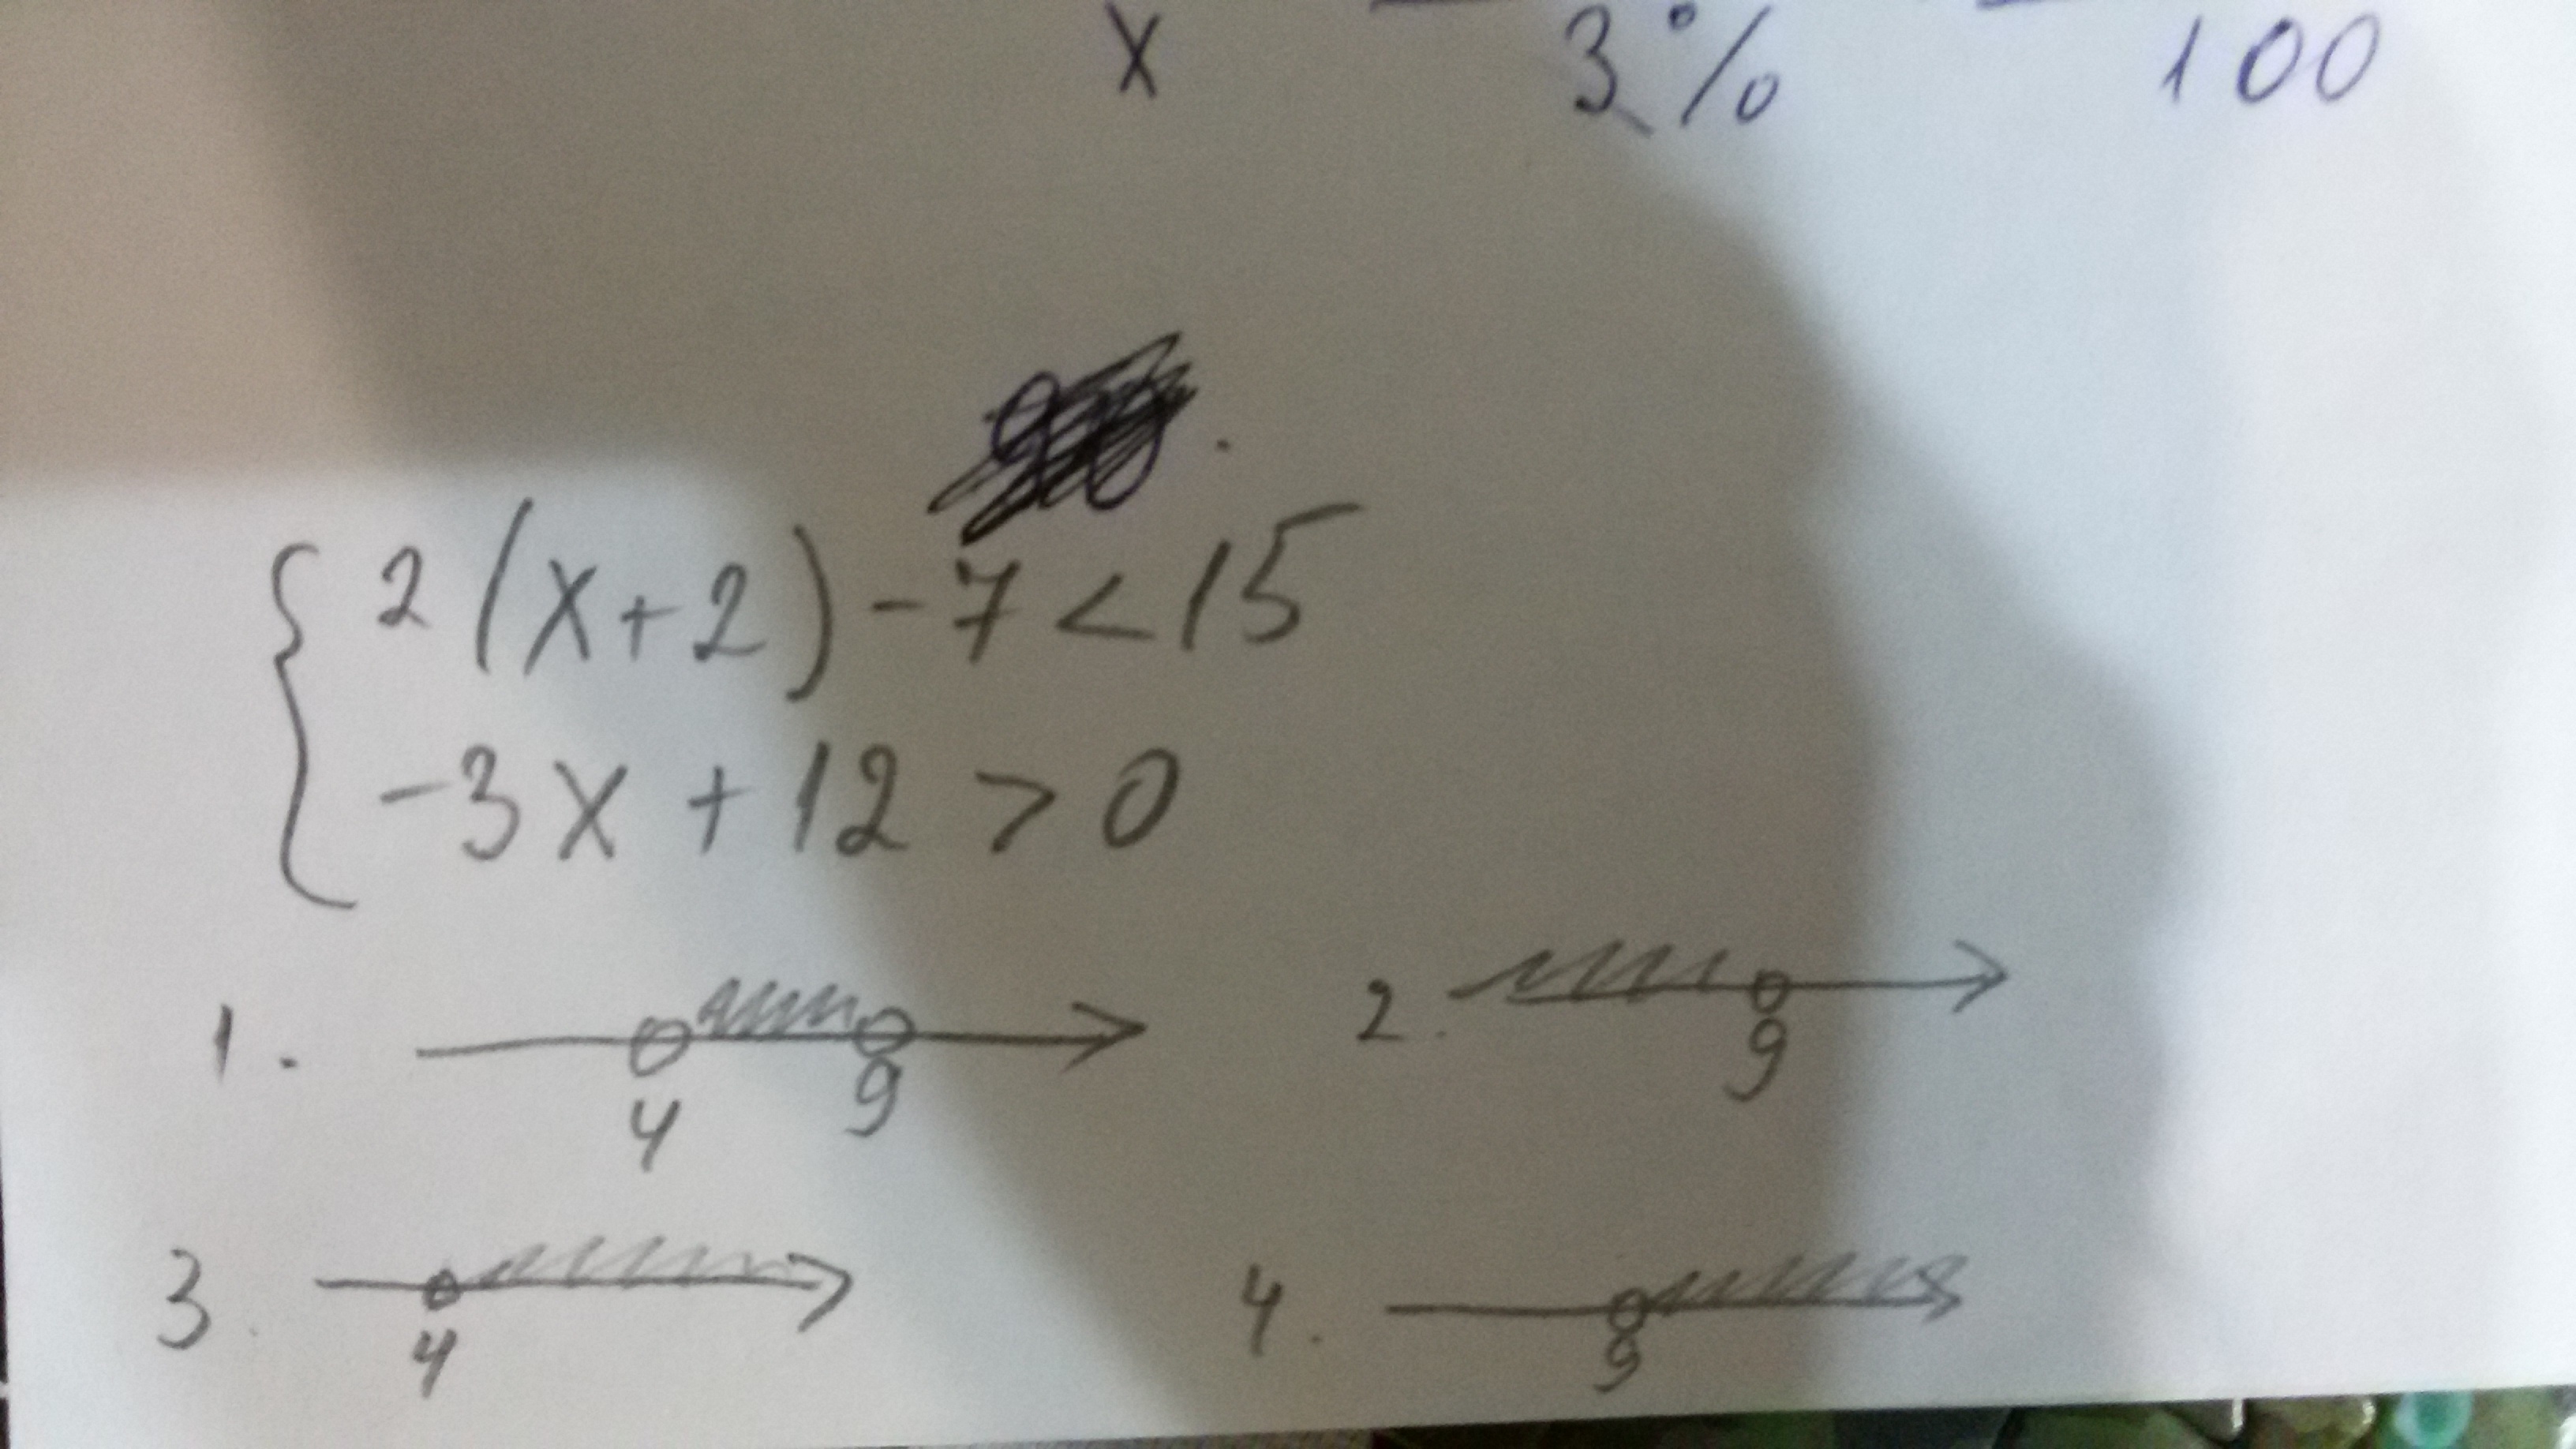 x 3% 100
2(x+2)-7<15
-3x+12>0
1. 4 9
2. 9
3. 4
4. 9